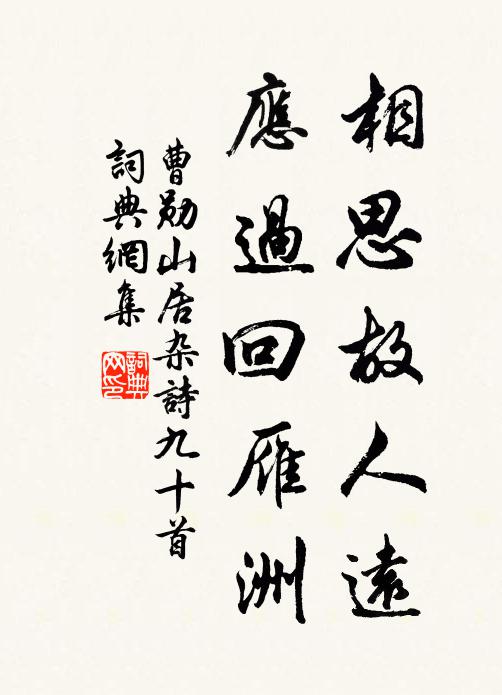 相思故人遠
應過回雁洲
曹勛山居杂詩九十首
詞典網集
詞典網印